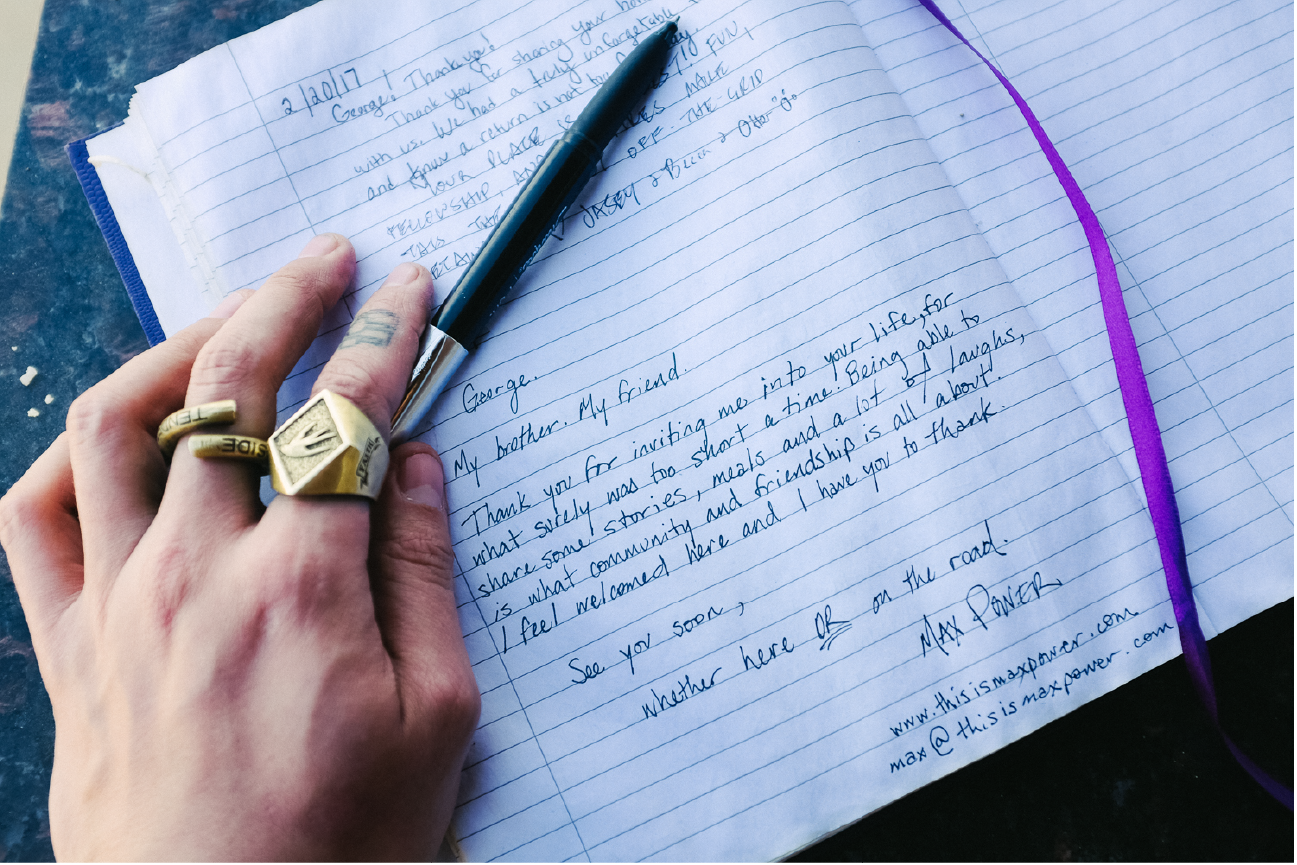 2/20/17
George! Thank you!
Thank you for sharing your
with us. We had a truly unforgettable
and know a return is not too
YOUR PLACE IS
FELLOWSHIP, AND MAKE
THIS THE OFF-THE-GRID
JASEY &
George.
My brother. My friend.
Thank you for inviting me into your life, for
what surely was too short a time! Being able to
share some stories, meals and a lot of laughs,
is what community and friendship is all about!
I feel welcomed here and I have you to thank.
See you soon,
whether here OR on the road.
MAX POWER
www.thisismaxpower.com
max@thisismaxpower.com
TEN
SIDE